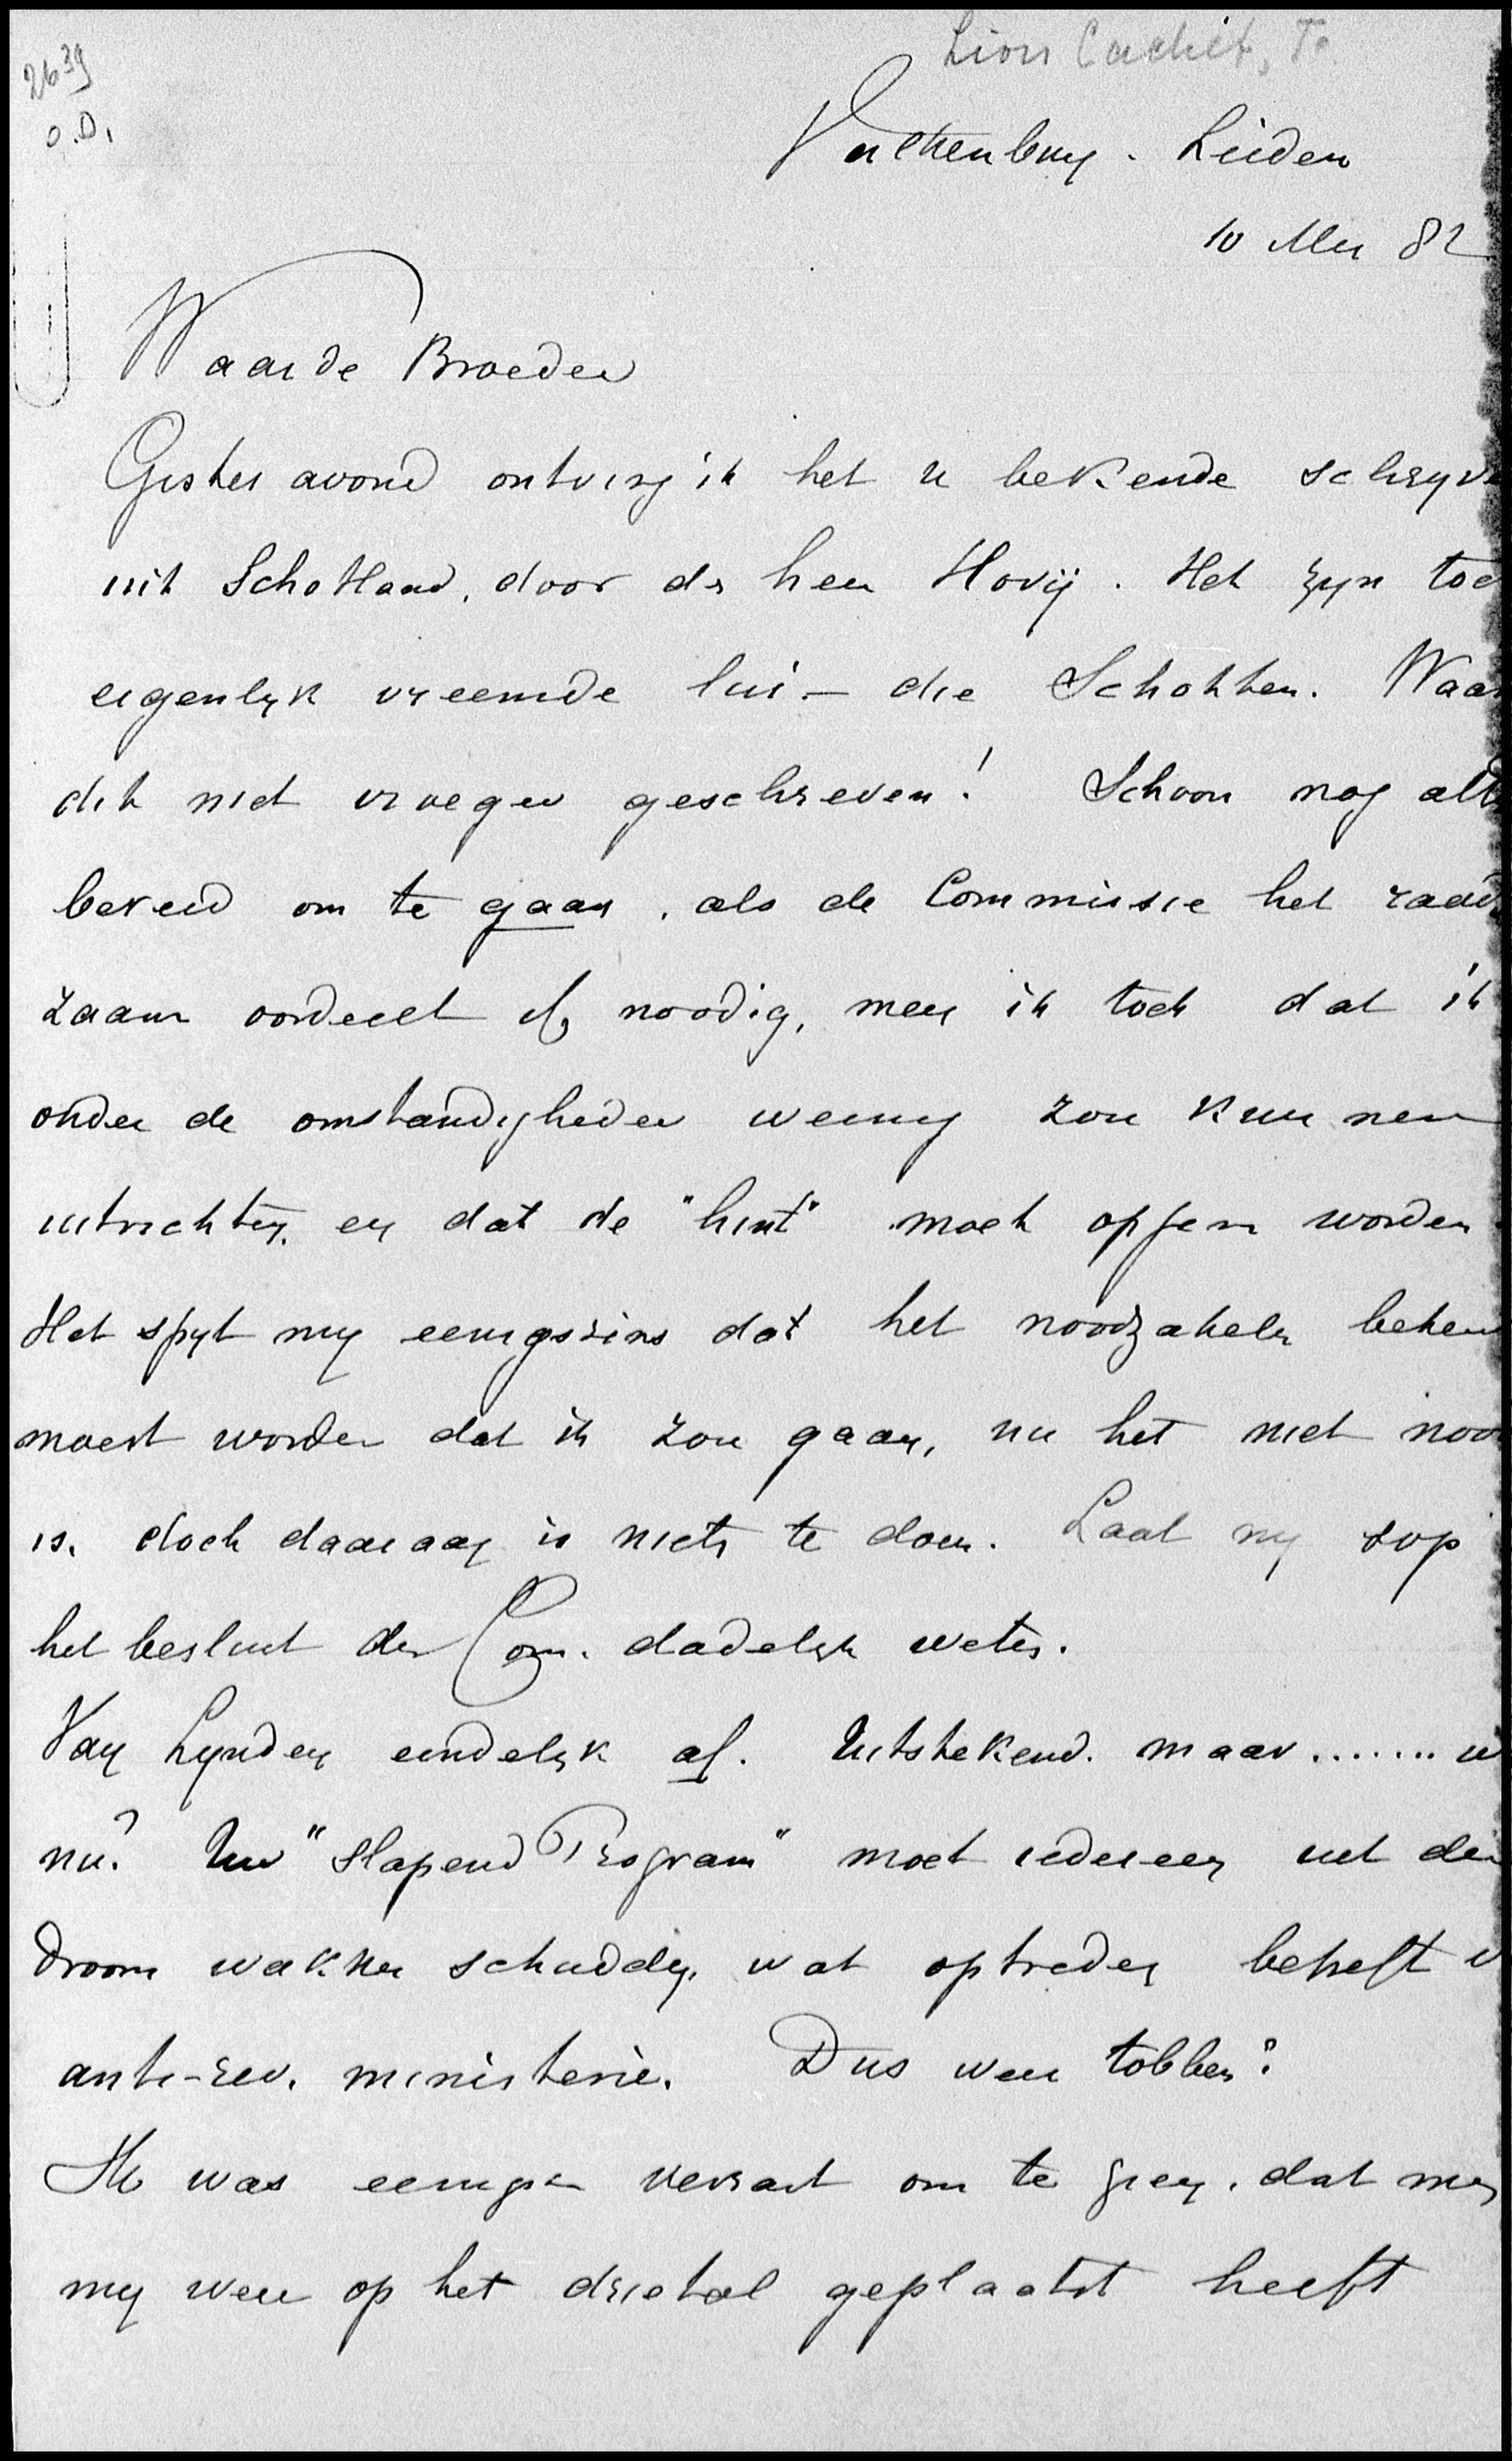 2639
O.D.
Lion Cachet, F.
Valkenburg. Leiden
10 Mei 82
Waarde Broeder
Gister avond ontving ik het u bekende schryve
uit Schotland, door de heer Hovij. Het zyn toc
eigenlyk vreemde lui – die Schotten. Waar
dit niet vroeger geschreven! Schoon nog alt
bereid om te gaan, als de Commissie het raad
zaam oordeelt of noodig, meen ik toch dat ik
onder de omstandigheden weinig zou kunnen
uitrichten, en dat de "hint" moet opgen worden.
Het spyt my eenigszins dat het noodzakelyk beken
moest worden dat ik zou gaan, nu het niet noo
is, doch daaraan is niets te doen. Laat my svp
het besluit der Com. dadelyk weten.
Van Lynden eindelyk af. Uitstekend. maar .......
nu? Uw "Slapend Program" moet iedereen uit den
droom wakker schudden, wat optreden betreft v
anti-rev. ministerie. Dus weer tobben?
Ik was eenigsz verrast om te zien, dat men
my weer op het drietal geplaatst heeft